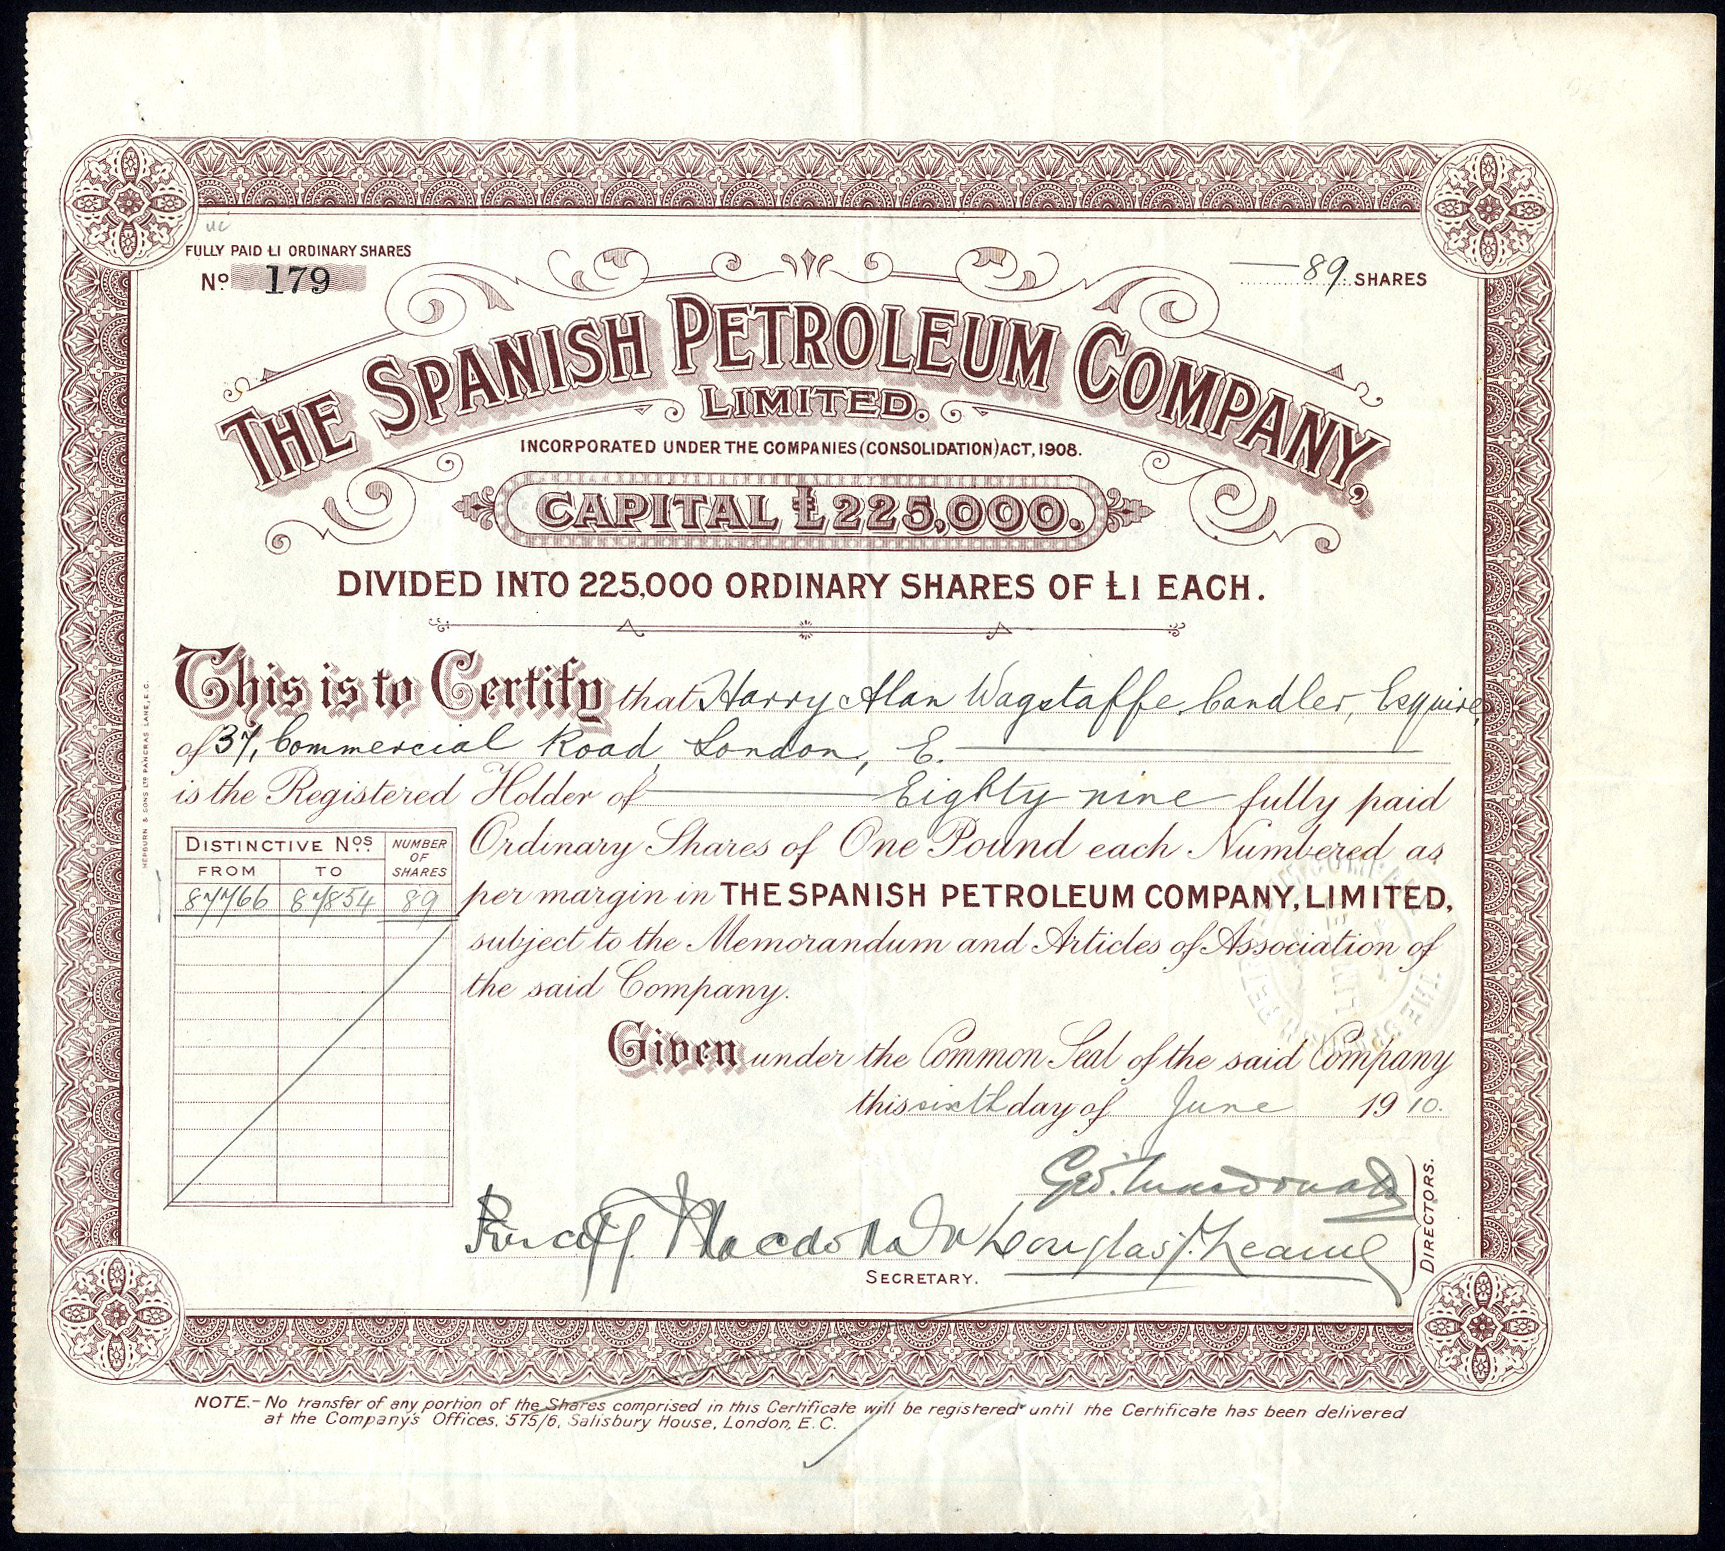 FULLY PAID £1 ORDINARY SHARES
No. 179
89 SHARES
THE SPANISH PETROLEUM COMPANY,
LIMITED.
INCORPORATED UNDER THE COMPANIES (CONSOLIDATION) ACT, 1908.
CAPITAL £225,000.
DIVIDED INTO 225,000 ORDINARY SHARES OF £1 EACH.
This is to Certify that Harry Alan Wagstaffe Candler, Esquire,
of 37, Commercial Road, London, E.
is the Registered Holder of Eighty nine fully paid
Ordinary Shares of One Pound each Numbered as
per margin in THE SPANISH PETROLEUM COMPANY, LIMITED,
subject to the Memorandum and Articles of Association of
the said Company.
DISTINCTIVE Nos. NUMBER OF SHARES
FROM TO
87766 87854 89
Given under the Common Seal of the said Company
this sixth day of June 1910.
Geo. Macdonald
Percy J. Macdonald
Douglas
DIRECTORS.
SECRETARY.
NOTE.- No transfer of any portion of the Shares comprised in this Certificate will be registered until the Certificate has been delivered
at the Company's Offices, 575/6, Salisbury House, London, E.C.
HEPBURN & SONS LTD PANCRAS LANE, E.C.